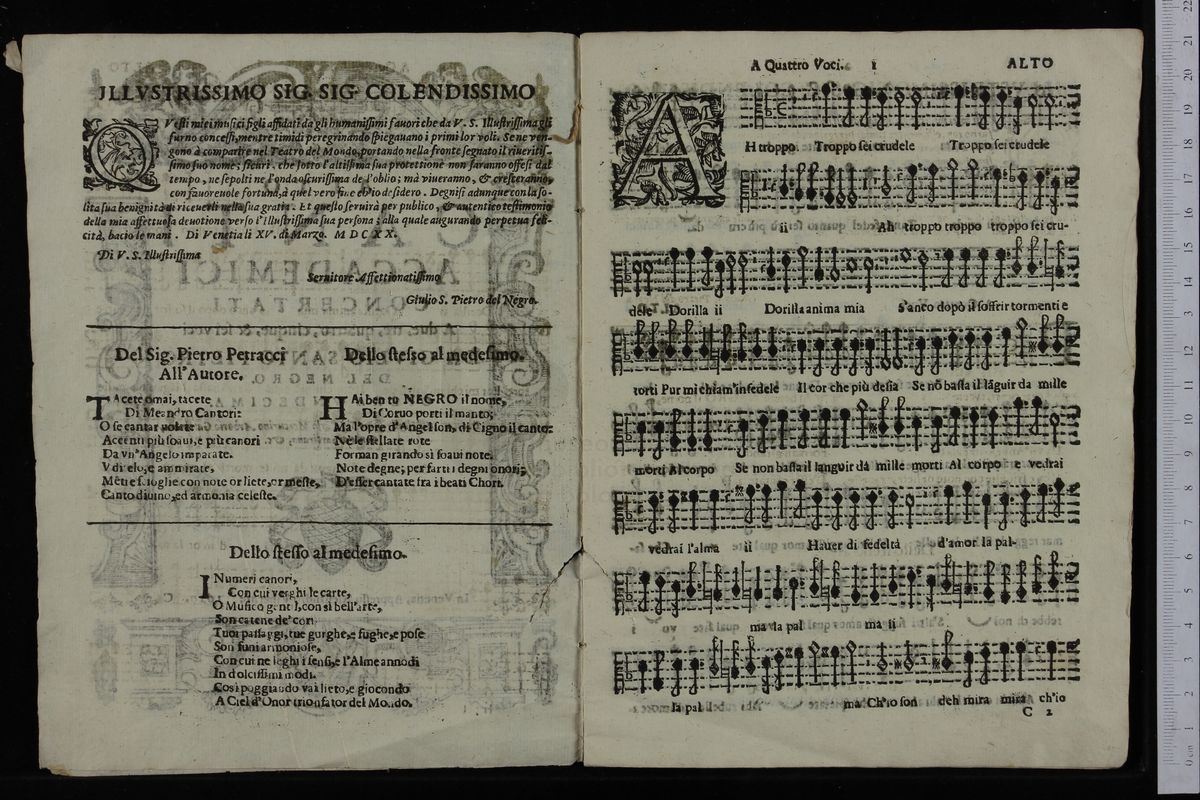 ILLVSTRISSIMO SIG. SIG. COLENDISSIMO
Questi miei musici figli affidati da gli humanissimi fauori che da V. S. Illustrissima gli
furno concessi, mentre timidi peregrinando spiegauano i primi lor voli. Se ne ven-
gono à comparire nel Teatro del Mondo, portando nella fronte segnato il riueritis-
simo suo nome; sicuri, che sotto l'altissima sua protettione non saranno offesi dal
tempo, ne sepolti ne l'onda oscurissima de l'oblio; mà viueranno, & cresceranno,
con fauoreuole fortuna, à quel vero fine ch'io desidero. Degnisi adunque con la so-
lita sua benignità di riceuerli nella sua gratia. Et questo seruirà per publico, & autentico testimonio
della mia affettuosa deuotione verso l'Illustrissima sua persona; alla quale augurando perpetua feli-
cità, bacio le mani. Di Venetia li XV. di Marzo. MDCXX.
Di V. S. Illustrissima
Seruitore Affettionatissimo
Giulio S. Pietro del Negro.
Del Sig. Pietro Petracci
All'Autore.
TAcete omai, tacete
Di Meandro Cantori:
O se cantar volete
Accenti più soaui, e più canori
Da vn'Angelo imparate.
Vdirelo, e ammirate,
Mentre scioglie con note or liete, or meste,
Canto diuino, ed armonia celeste.
Dello stesso al medesimo.
HAi ben tu NEGRO il nome,
Di Coruo porti il manto;
Ma l'opre d'Angel son, di Cigno il canto:
Nè le stellate rote
Forman girando sì soaui note.
Note degne; per farti i degni onori;
D'esser cantate fra i beati Chori.
Dello stesso al medesimo.
I Numeri canori,
Con cui verghi le carte,
O Musico gentil, con sì bell'arte,
Son catene de' cori
Tuoi passaggi, tue gorghe, e fughe, e pose
Son funi armoniose,
Con cui ne leghi i sensi, e l'Alme annodi
In dolcissimi modi.
Così poggiando vai lieto, e giocondo
A Ciel d'Onor trionfator del Mondo.
A Quattro Voci. 1 ALTO
AH troppo Troppo sei crudele Troppo sei crudele
ii Ah troppo troppo troppo sei cru-
dele Dorilla ii Dorilla anima mia S'anco dopò il soffrir tormenti e
torti Pur mi chiam'infedele Il cor che più desia Se nō basta il lāguir da mille
morti Al corpo Se non basta il languir da mille morti Al corpo e vedrai
vedrai l'alma ii Hauer di fedeltà d'amor la pal-
ma la pal ma ii
la pal ma Ch'io son deh mira mira ch'io
C 2